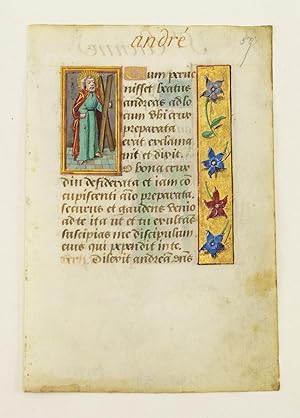 andré
59
Cum perue
nisset beatus
andreas ad lo
cum vbi crux
preparata
erat exclama
uit et dixit.
O bona crux
diu desiderata et iam co
cupiscenti aīo preparata.
securus et gaudens venio
ad te ita ut et tu exultans
suscipias me discipulum
eius qui pependit in te.
Dilexit andreā dn̄s